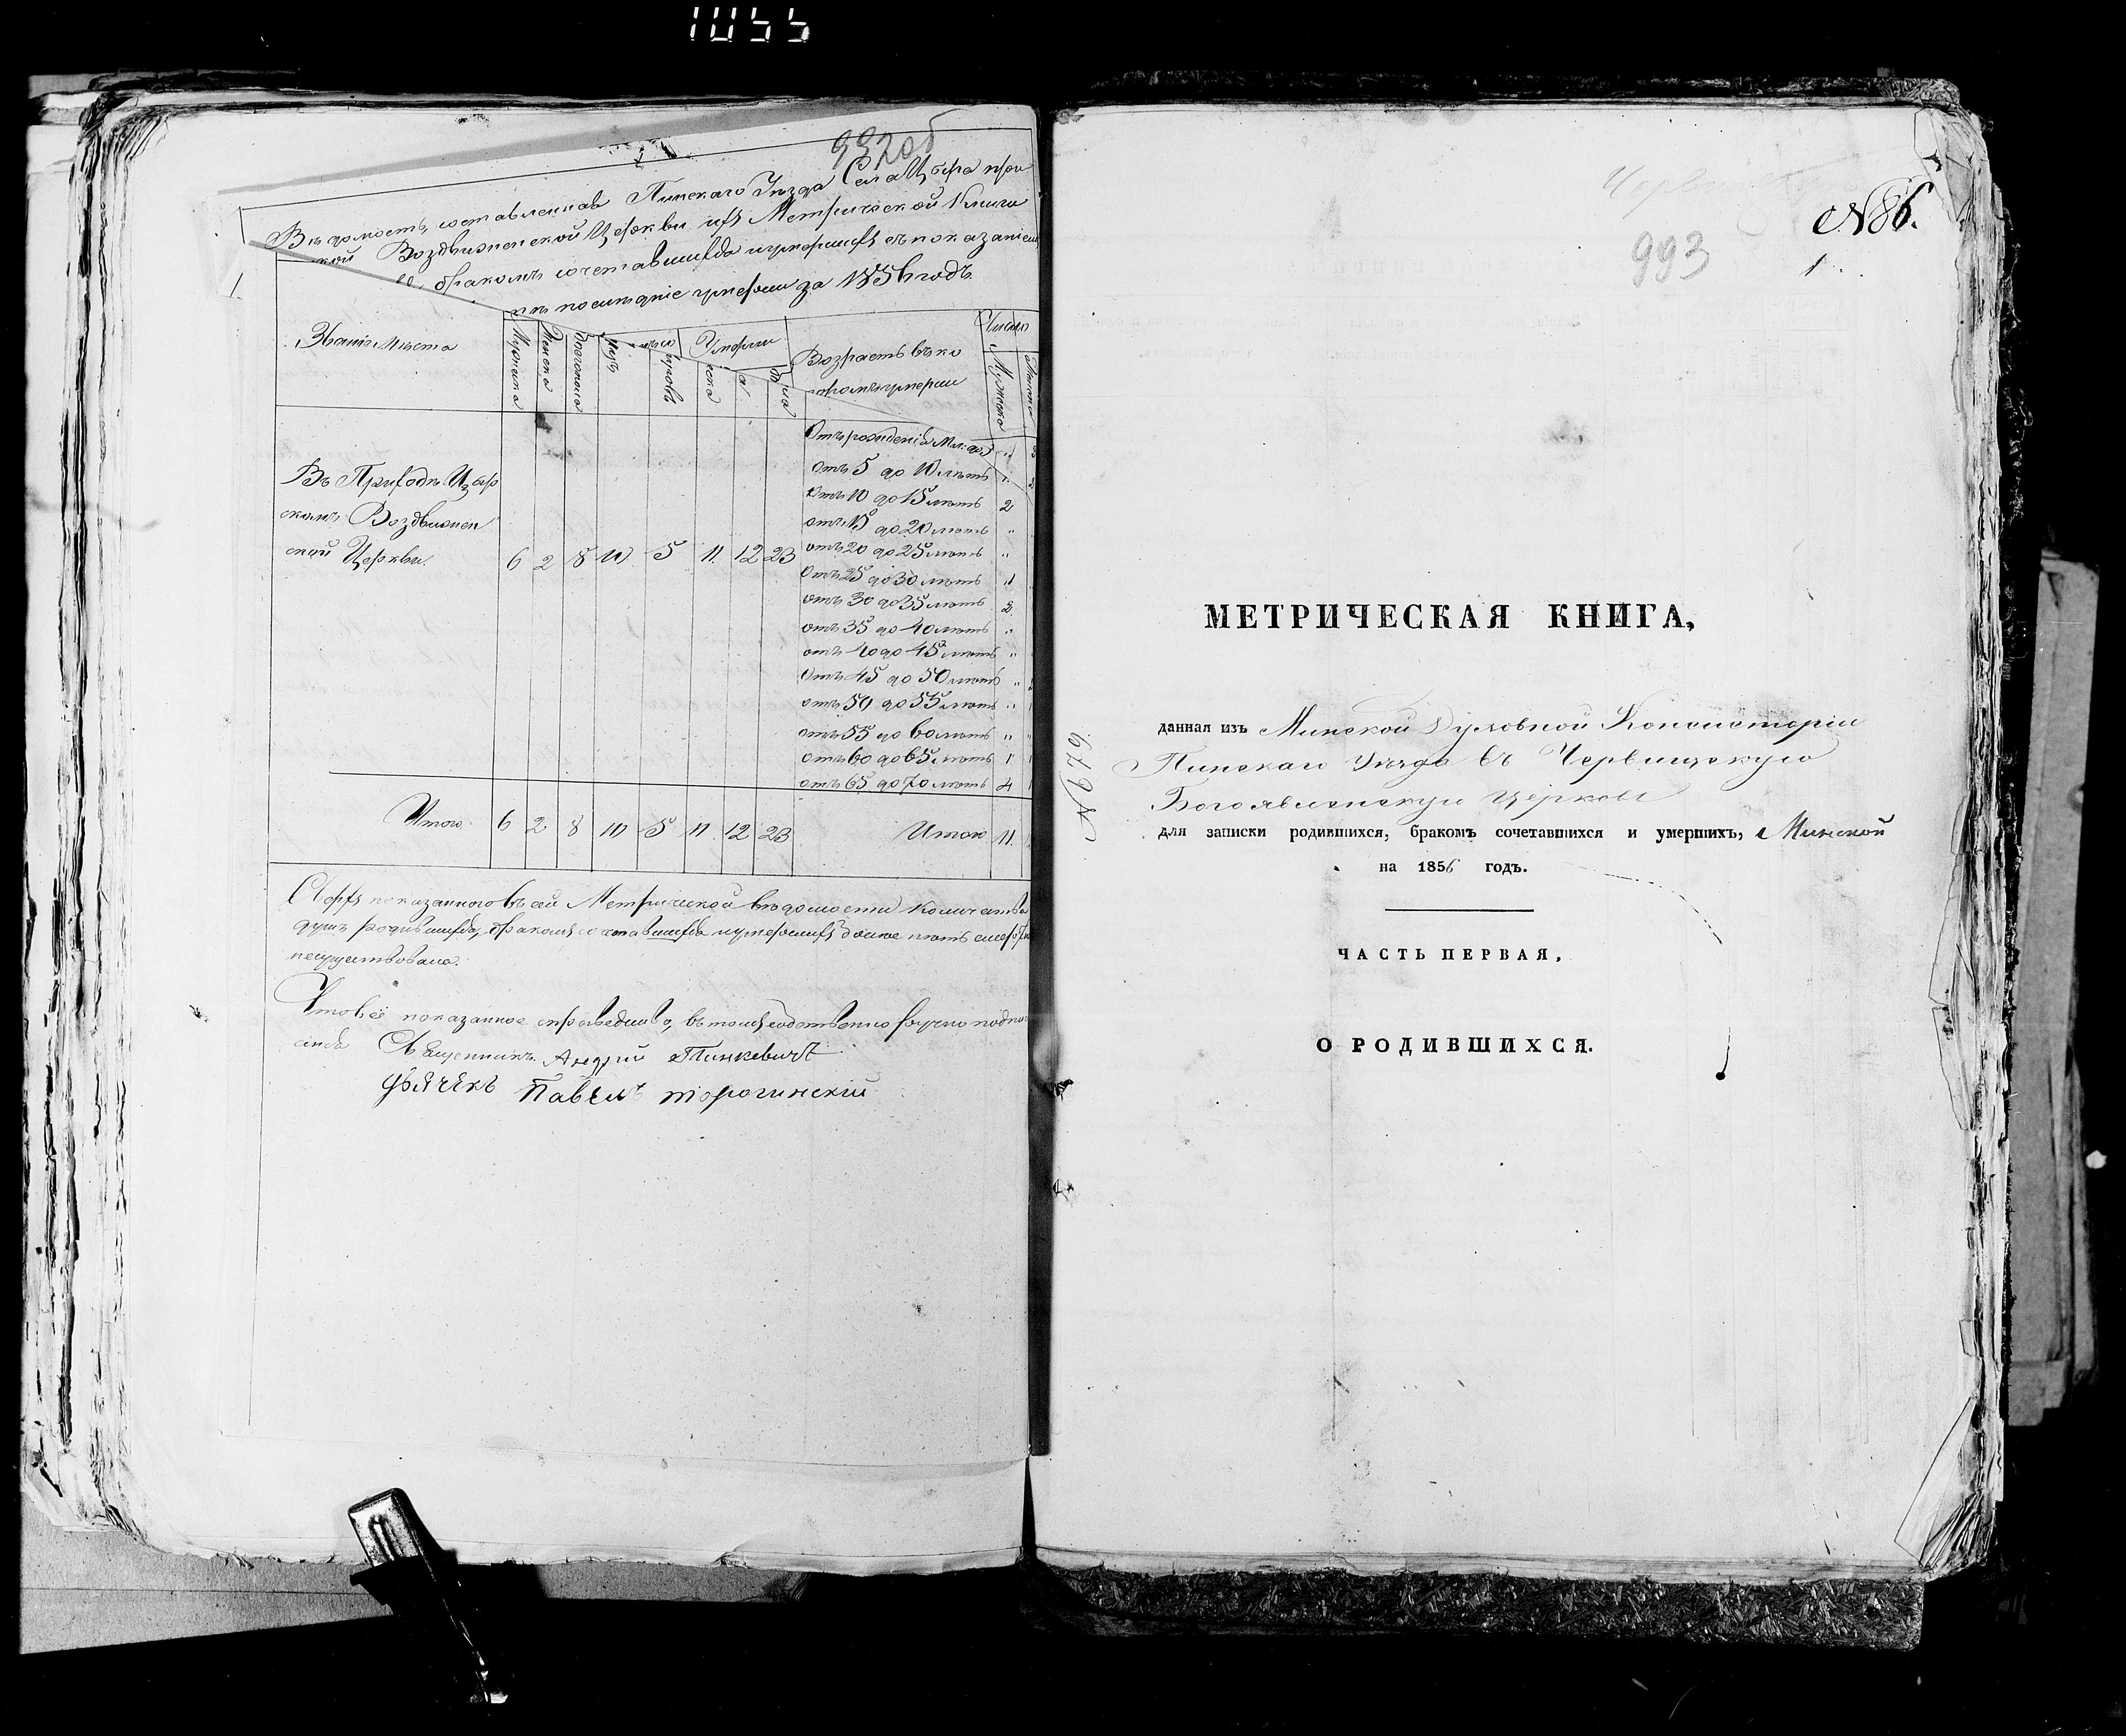 1055
992об
Вѣдомость, составленная Пинскаго Уѣзда Села Избра при
Воздвиженской Церкви изъ Метрической Книги
бракомъ сочетавшихся и умершихъ съ показаніемъ
послѣдніе умерли за 1856 годъ
Званіе мѣста
Мужеска
Женска
Обоегопола
Умерли
Возрастъ въ ко
торомъ умерли
Число
Мужеска
Въ Приходѣ Избр
скомъ Воздвижен
ской Церкви. 6 2 8 10 5 11 12 23
Отъ рожденія до 5 "
отъ 5 до 10 лѣтъ 1
отъ 10 до 15 лѣтъ 2
отъ 15 до 20 лѣтъ "
отъ 20 до 25 лѣтъ "
отъ 25 до 30 лѣтъ 1
отъ 30 до 35 лѣтъ 2
отъ 35 до 40 лѣтъ "
отъ 40 до 45 лѣтъ "
отъ 45 до 50 лѣтъ "
отъ 50 до 55 лѣтъ "
отъ 55 до 60 лѣтъ "
отъ 60 до 65 лѣтъ 1
отъ 65 до 70 лѣтъ 4
Итого 6 2 8 10 5 11 12 23 Итого 11.
Сверхъ показанного въ сей Метрической вѣдомости количества
душъ родившихся, бракомъ сочетавшихся и умершихъ болѣе
Что всё показанное справедливо, въ томъ собственноручно подпи
Священникъ Андрей Пинкевичъ
Дьячекъ Павелъ Торогинскій
№ 86.
993
1
МЕТРИЧЕСКАЯ КНИГА,
№ 679
данная изъ Минской Духовной Консисторіи
Пинскаго Уѣзда въ Червищскую
Богоявленскую Церковь
для записки родившихся, бракомъ сочетавшихся и умершихъ, Минской
на 1856 годъ.
ЧАСТЬ ПЕРВАЯ,
О РОДИВШИХСЯ.